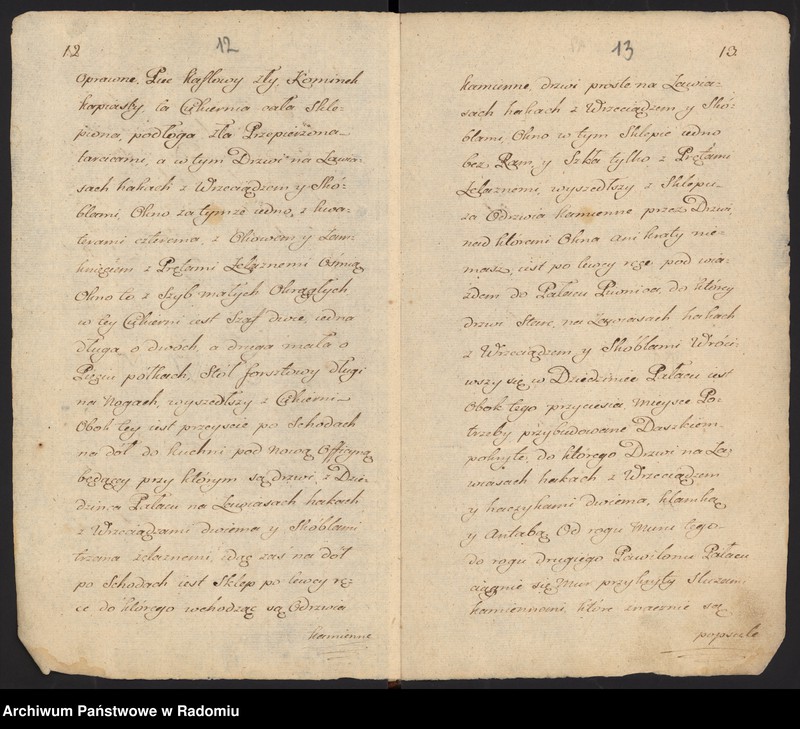 12
12
oprawne, Piec kaflowy zły, Kominek
kapiasty, ta Cukiernia cała Skle-
piona, podłoga zła Przepierzona
tarcicami, a w tym Drzwi na Zawia-
sach hakach z Wrzeciądzem y Skó-
blami, Okno za tym że iedno, z kwa-
terami czterema, z Okowem y Zam-
knięciem z Prętami Żelaznemi Ośmią
Okno to z Szyb małych Okrągłych,
w tey Cukierni iest Szaf dwie, iedna
długa o dwóch, a druga mała o
Pięciu półkach, Stół forsztowy długi
na Nogach, wyszedłszy z Cukierni
Obok tey iest przeyście po Schodach
na dół do kuchni pod Nową Officyną
będącey przy którym są drzwi z Dzie-
dzińca Pałacu na Zawiasach hakach
z Wrzeciądzami dwiema y Skóblami
trzema żelaznemi, idąc zaś na dół
po Schodach iest Sklep po lewey rę-
ce do którego wchodząc są Odrzwia
kamienne
13
13
kamienne, drzwi proste na Zawia-
sach hakach z Wrzeciądzem y Skó-
blami, Okno w tym Sklepie iedno
bez Ram, y Szkła tylko z Prętami
Żelaznemi, wyszedłszy z Sklepu
za Odrzwia kamienne przez Drzwi,
nad któremi Okna ani kraty nie-
masz, iest po lewey ręce pod wia-
zdem do Pałacu Piwnica, do którey
drzwi Stare, na Zawiasach hakach
z Wrzeciądzem y Skóblami Wróci-
wszy się w Dziedziniec Pałacu iest
Obok tego przyciesia, Mieysce Po-
trzeby przybudowane Daszkiem
pokryte, do którego Drzwi na Za-
wiasach hakach z Wrzeciądzem
y haczykami dwiema, klamką
y Antabą, Od rogu Muru tego
do rogu drugiego Pawilonu Pałacu
ciągnie się Mur przykryty
kamiennemi, które znacznie są
popsute
Archiwum Państwowe w Radomiu